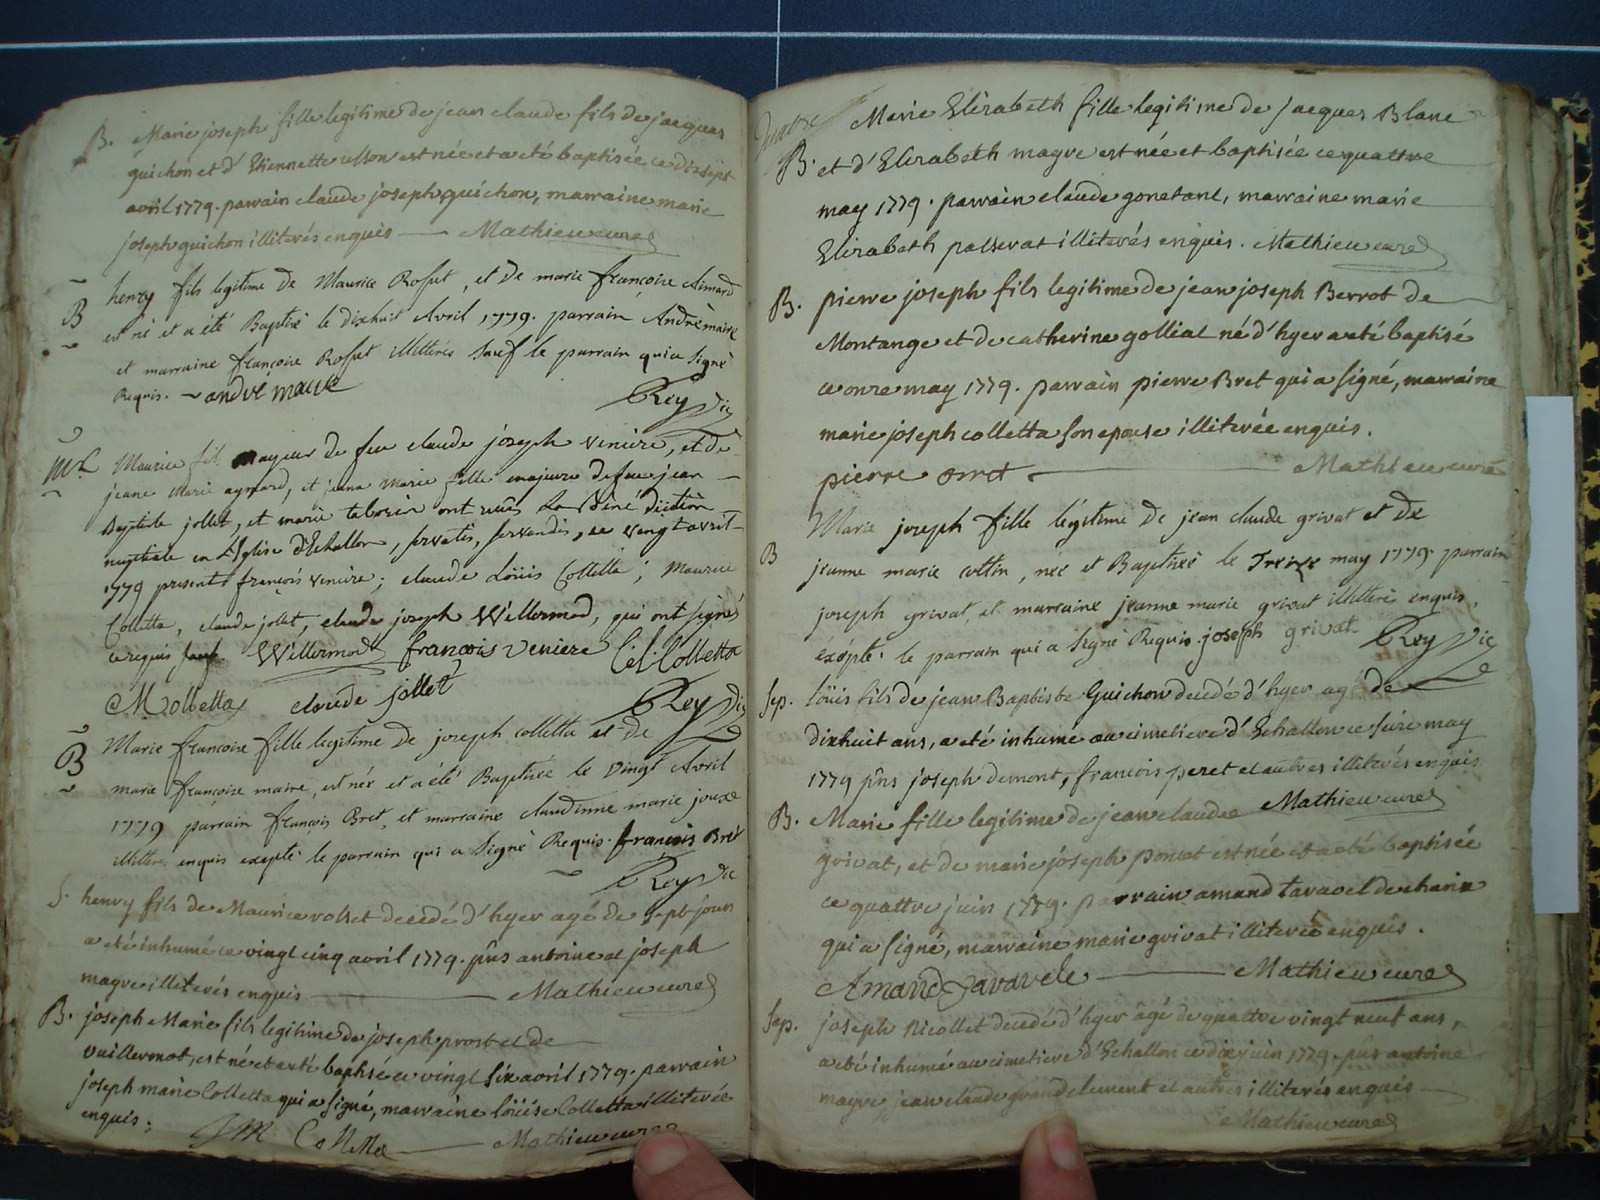 B. Marie joseph fille legitime de jean claude fils de jacques
guichon et d'Etiennette ullon est née et a eté baptisée ce dixsept
avril 1779. parrain claude joseph guichon, marraine marie
joseph guichon illiterés enquis — Mathieu curé
B henry fils legitime de Maurice Rosset, et de marie françoise Aimard
est né et a été Baptisé le dixhuit Avril 1779. parrain André maire
et marraine françoise Rosset illitterés sauf le parrain qui a signé
Requis. — andré maire Rey Vic
Mr Maurice fil mayeur de feu claude joseph veniere, et de
jeane Marie aymard, et jeane Marie fille majeure de feu jean
Baptiste jollet, et marie ont reçus La Béné diction
nuptiale en L'Eglise d'Echallon, servatis, servandis, ce vengt avril
1779 presents françois veniere; claude Loüis Colletta; Maurice
Colletta, claude jollet, claude joseph Wellermod, qui ont signés
ce requis Willermod françois veniere C: L: Colletta
M olletta claude jollet Rey Vic
B Marie francoise fille legitime de joseph colletta et de
marie françoise maire, est née et a été Baptisée le vingt Avril
1779 parrain françois Bret, et marraine claudinne marie joux
illitteré enquis exepté le parrain qui a signé Requis. francois Bret
Rey Vic
S. henry fils de Maurice rosset decedé d'hyer agé de sept jours
a eté inhumé ce vingt cinq avril 1779. pñs antoine et joseph
magre illiterés enquis — Mathieu curé
B. joseph Marie fils legitime de joseph prost et de
vuillermot, est né et a eté baptisé ce vingt six avril 1779. parrain
joseph marie Colletta qui a signé, marraine loüise Colletta illiterée
enquis; JM Colletta — Mathieu curé
Marie Elizabeth fille legitime de jacques Blanc
B. et d'Elizabeth magre est née et baptisée ce quattre
may 1779. parrain claude gonetant, marraine marie
Elizabeth passerat illiterés enquis. Mathieu curé
B. pierre joseph fils legitime de jean joseph Berrot de
Montange et de catherine golliat né d'hyer a eté baptisé
ce onze may 1779. parrain pierre Bret qui a signé, marraine
marie joseph colletta son epouse illiterée enquis.
pierre Bret — Mathieu curé
Marie joseph fille légitime de jean claude grivat et de
B jeanne marie cottin, née et Baptisée le Treize may 1779. parrain
joseph grivat, et marraine jeanne marie grivat illitterés enquis,
éxépté le parrain qui a signé Requis. joseph grivat Rey Vic
Sep. loüis fils de jean Baptiste Guichon decedé d'hyer agé de
dixhuit ans, a eté inhumé au cimetiere d'Echallon ce seize may
1779 pñs joseph demont, francois peret et autres illiterés enquis
B. Marie fille legitime de jean claude Mathieu curé
grivat, et de marie joseph poncet est née et a eté baptisée
ce quattre juin 1779. parrain amand tavavel de charix
qui a signé, marraine marie grivat illiterée enquis.
Amand Tavavele — Mathieu curé
Sep. joseph Picollet decedé d'hyer âgé de quattre vingt neuf ans,
a eté inhumé au cimetiere d'Echallon ce dix juin 1779. pñs antoine
magre, jean claude grandclement et autres illiterés enquis —
Mathieu curé